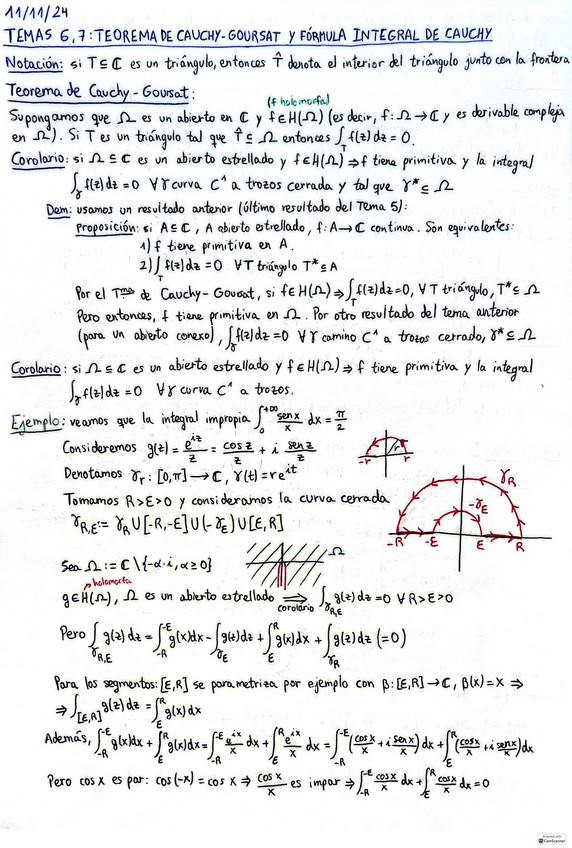 11/11/24
TEMAS 6,7: TEOREMA DE CAUCHY-GOURSAT Y FÓRMULA INTEGRAL DE CAUCHY
Notación: si T⊆ℂ es un triángulo, entonces T̂ denota el interior del triángulo junto con la frontera
Teorema de Cauchy-Goursat:
(f holomorfa)
Supongamos que Ω es un abierto en ℂ y f∈H(Ω) (es decir, f:Ω→ℂ y es derivable compleja
en Ω). Si T es un triángulo tal que T̂⊆Ω entonces ∫_T f(z)dz = 0.
Corolario: si Ω⊆ℂ es un abierto estrellado y f∈H(Ω) ⇒ f tiene primitiva y la integral
∫_γ f(z)dz = 0 ∀γ curva C¹ a trozos cerrada y tal que γ*⊆Ω
Dem: usamos un resultado anterior (último resultado del Tema 5):
Proposición: si A⊆ℂ, A abierto estrellado, f:A→ℂ continua. Son equivalentes:
1) f tiene primitiva en A.
2) ∫_T f(z)dz = 0 ∀T triángulo T*⊆A
Por el Tᵐᵃ de Cauchy-Goursat, si f∈H(Ω) ⇒ ∫_T f(z)dz = 0, ∀T triángulo, T*⊆Ω
Pero entonces, f tiene primitiva en Ω. Por otro resultado del tema anterior
(para un abierto conexo), ∫_γ f(z)dz = 0 ∀γ camino C¹ a trozos cerrado, γ*⊆Ω
Corolario: si Ω⊆ℂ es un abierto estrellado y f∈H(Ω) ⇒ f tiene primitiva y la integral
∫_γ f(z)dz = 0 ∀γ curva C¹ a trozos.
Ejemplo: veamos que la integral impropia ∫_0^{+∞} sen x/x dx = π/2
Consideremos g(z) = e^{iz}/z = cos z/z + i sen z/z
-r r r
Denotamos γ_r: [0,π]→ℂ, γ(t) = re^{it}
Tomamos R>ε>0 y consideramos la curva cerrada
γ_{R,ε} := γ_R ∪ [-R,-ε] ∪ (-γ_ε) ∪ [ε,R]
γ_R
-γ_ε
-R -ε ε R
Sea Ω := ℂ\{-α·i, α≥0}
Ω
holomorfa
g∈H(Ω), Ω es un abierto estrellado ⇒ ∫_{γ_{R,ε}} g(z)dz = 0 ∀R>ε>0
corolario
Pero ∫_{γ_{R,ε}} g(z)dz = ∫_{-R}^{-ε} g(x)dx - ∫_{γ_ε} g(z)dz + ∫_ε^R g(x)dx + ∫_{γ_R} g(z)dz (=0)
Para los segmentos: [ε,R] se parametriza por ejemplo con β:[ε,R]→ℂ, β(x)=x ⇒
⇒ ∫_{[ε,R]} g(z)dz = ∫_ε^R g(x)dx
Además, ∫_{-R}^{-ε} g(x)dx + ∫_ε^R g(x)dx = ∫_{-R}^{-ε} e^{ix}/x dx + ∫_ε^R e^{ix}/x dx = ∫_{-R}^{-ε} (cos x/x + i sen x/x) dx + ∫_ε^R (cos x/x + i sen x/x) dx
Pero cos x es par: cos(-x) = cos x ⇒ cos x/x es impar ⇒ ∫_{-R}^{-ε} cos x/x dx + ∫_ε^R cos x/x dx = 0
CamScanner